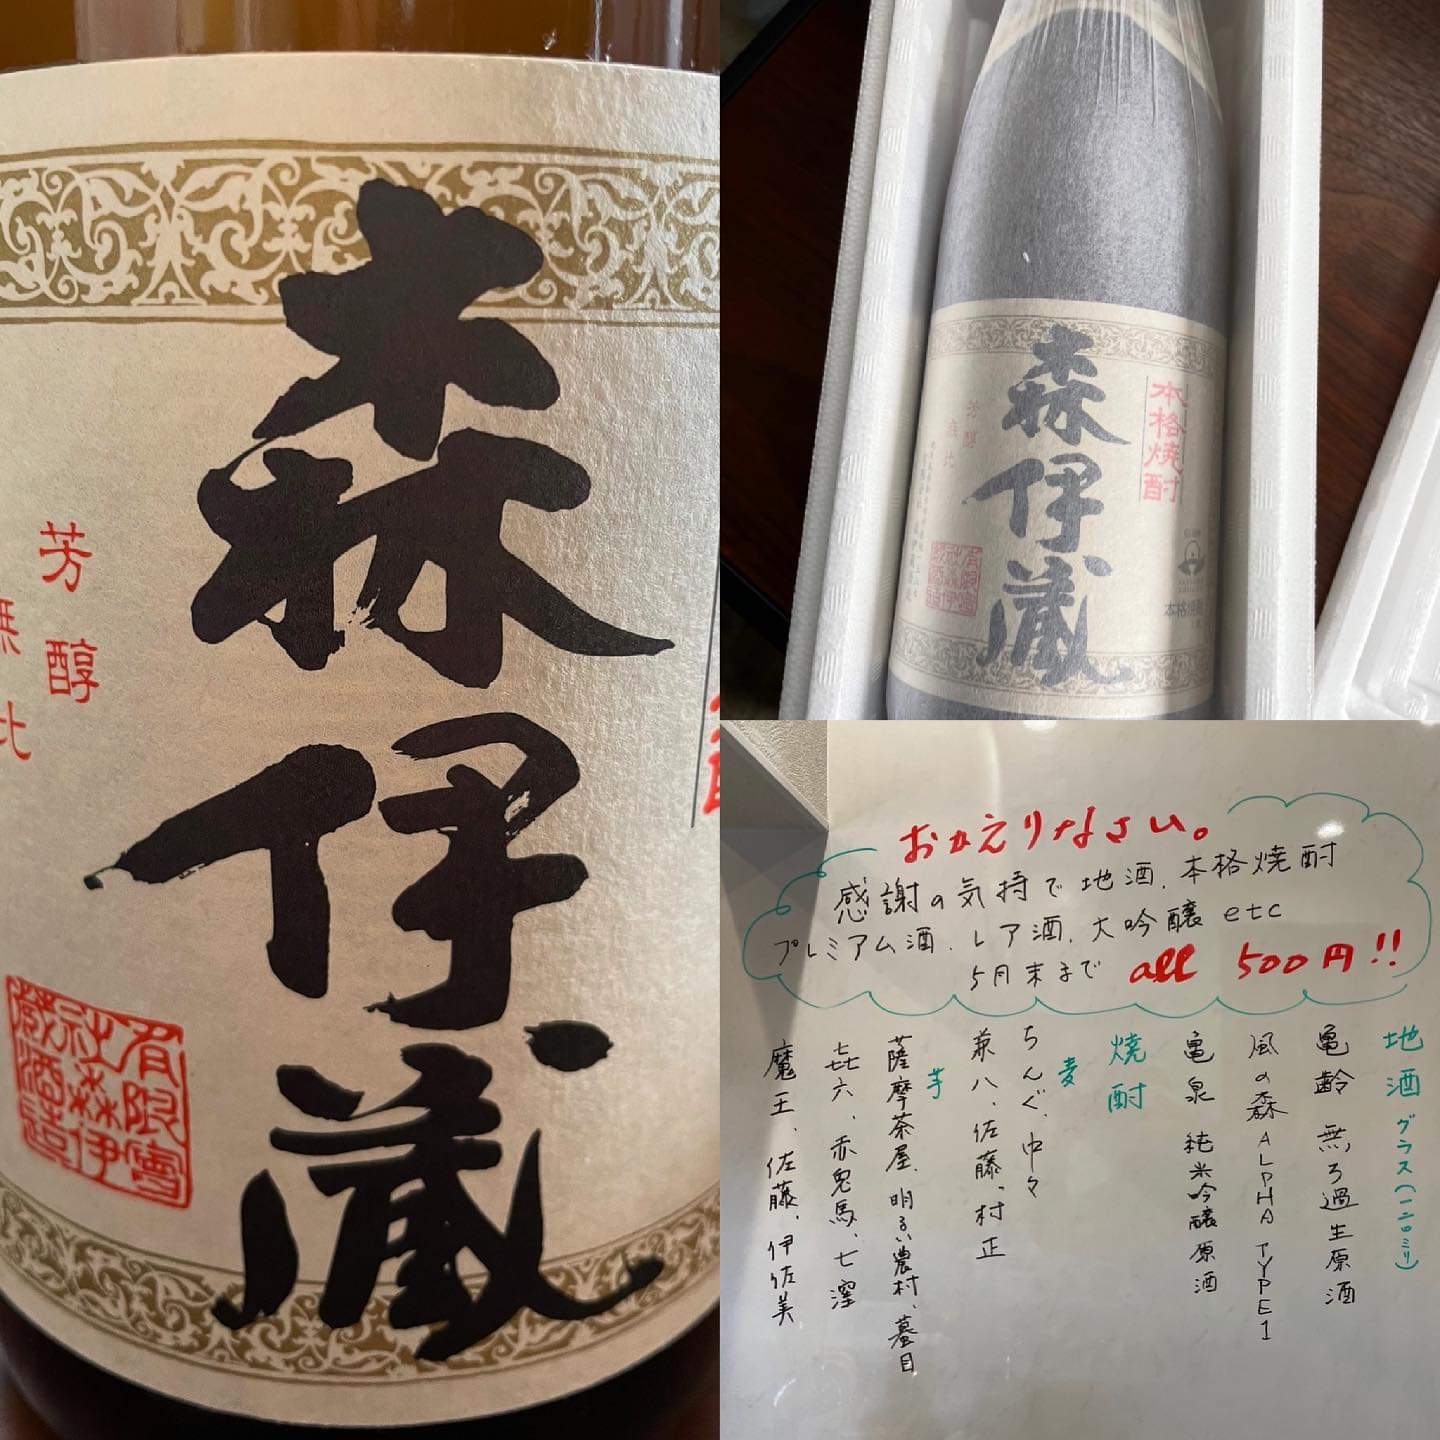 森伊蔵
芳醇
無比
有限會
社森伊
蔵酒造
森伊蔵
本格焼酎
芳醇
無比
有限會
社森伊
蔵酒造
本格焼酎
おかえりなさい。
感謝の気持で地酒、本格焼酎
プレミアム酒、レア酒、大吟醸 etc
5月末まで all 500円!!
地酒 グラス(一二〇ミリ)
亀齢 無ろ過生原酒
風の森 ALPHA TYPE1
亀泉 純米吟醸原酒
焼酎
麦
ちんぐ、中々
兼八、佐藤、村正
芋
薩摩茶屋、明るい農村、蟇目
㐂六、赤兎馬、七窪
魔王、佐藤、伊佐美